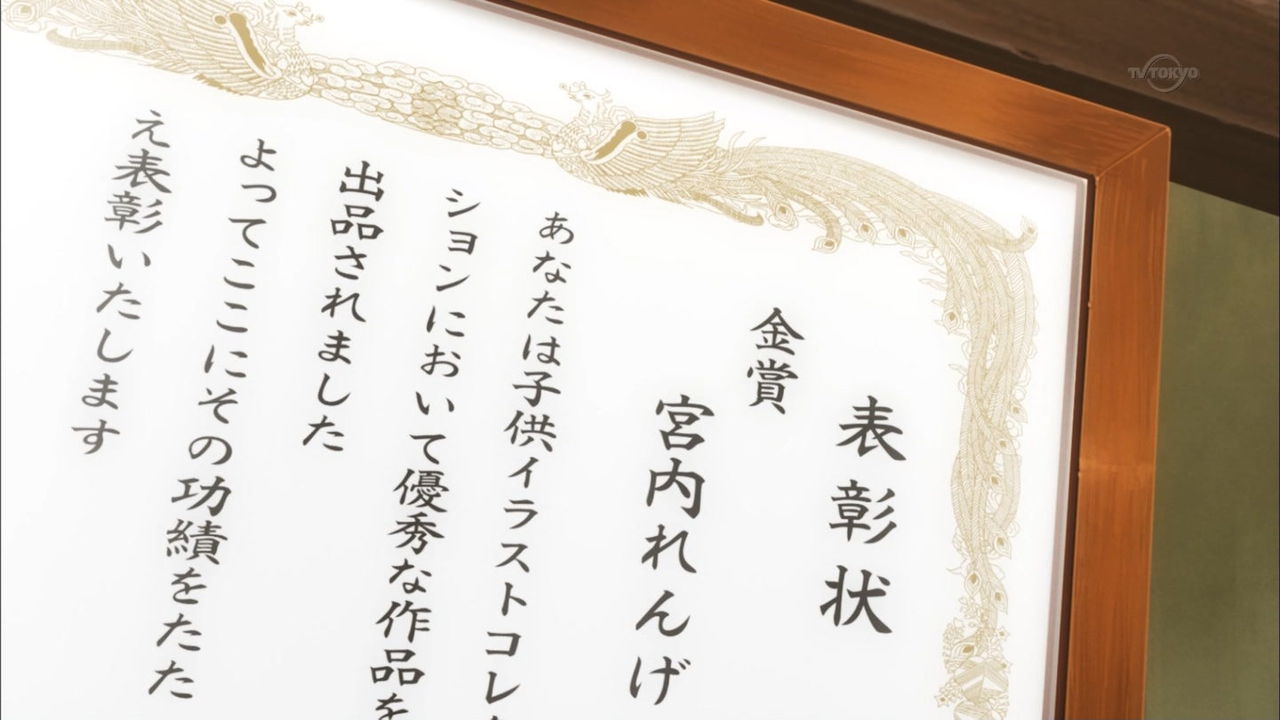 表彰状
金賞
宮内れんげ
あなたは子供イラストコレ
ションにおいて優秀な作品を
出品されました
よってここにその功績をたた
え表彰いたします
TV TOKYO